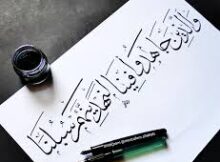 وَالَّذِينَ جَاهَدُوا فِينَا لَنَهْدِيَنَّهُمْ سُبُلَنَا